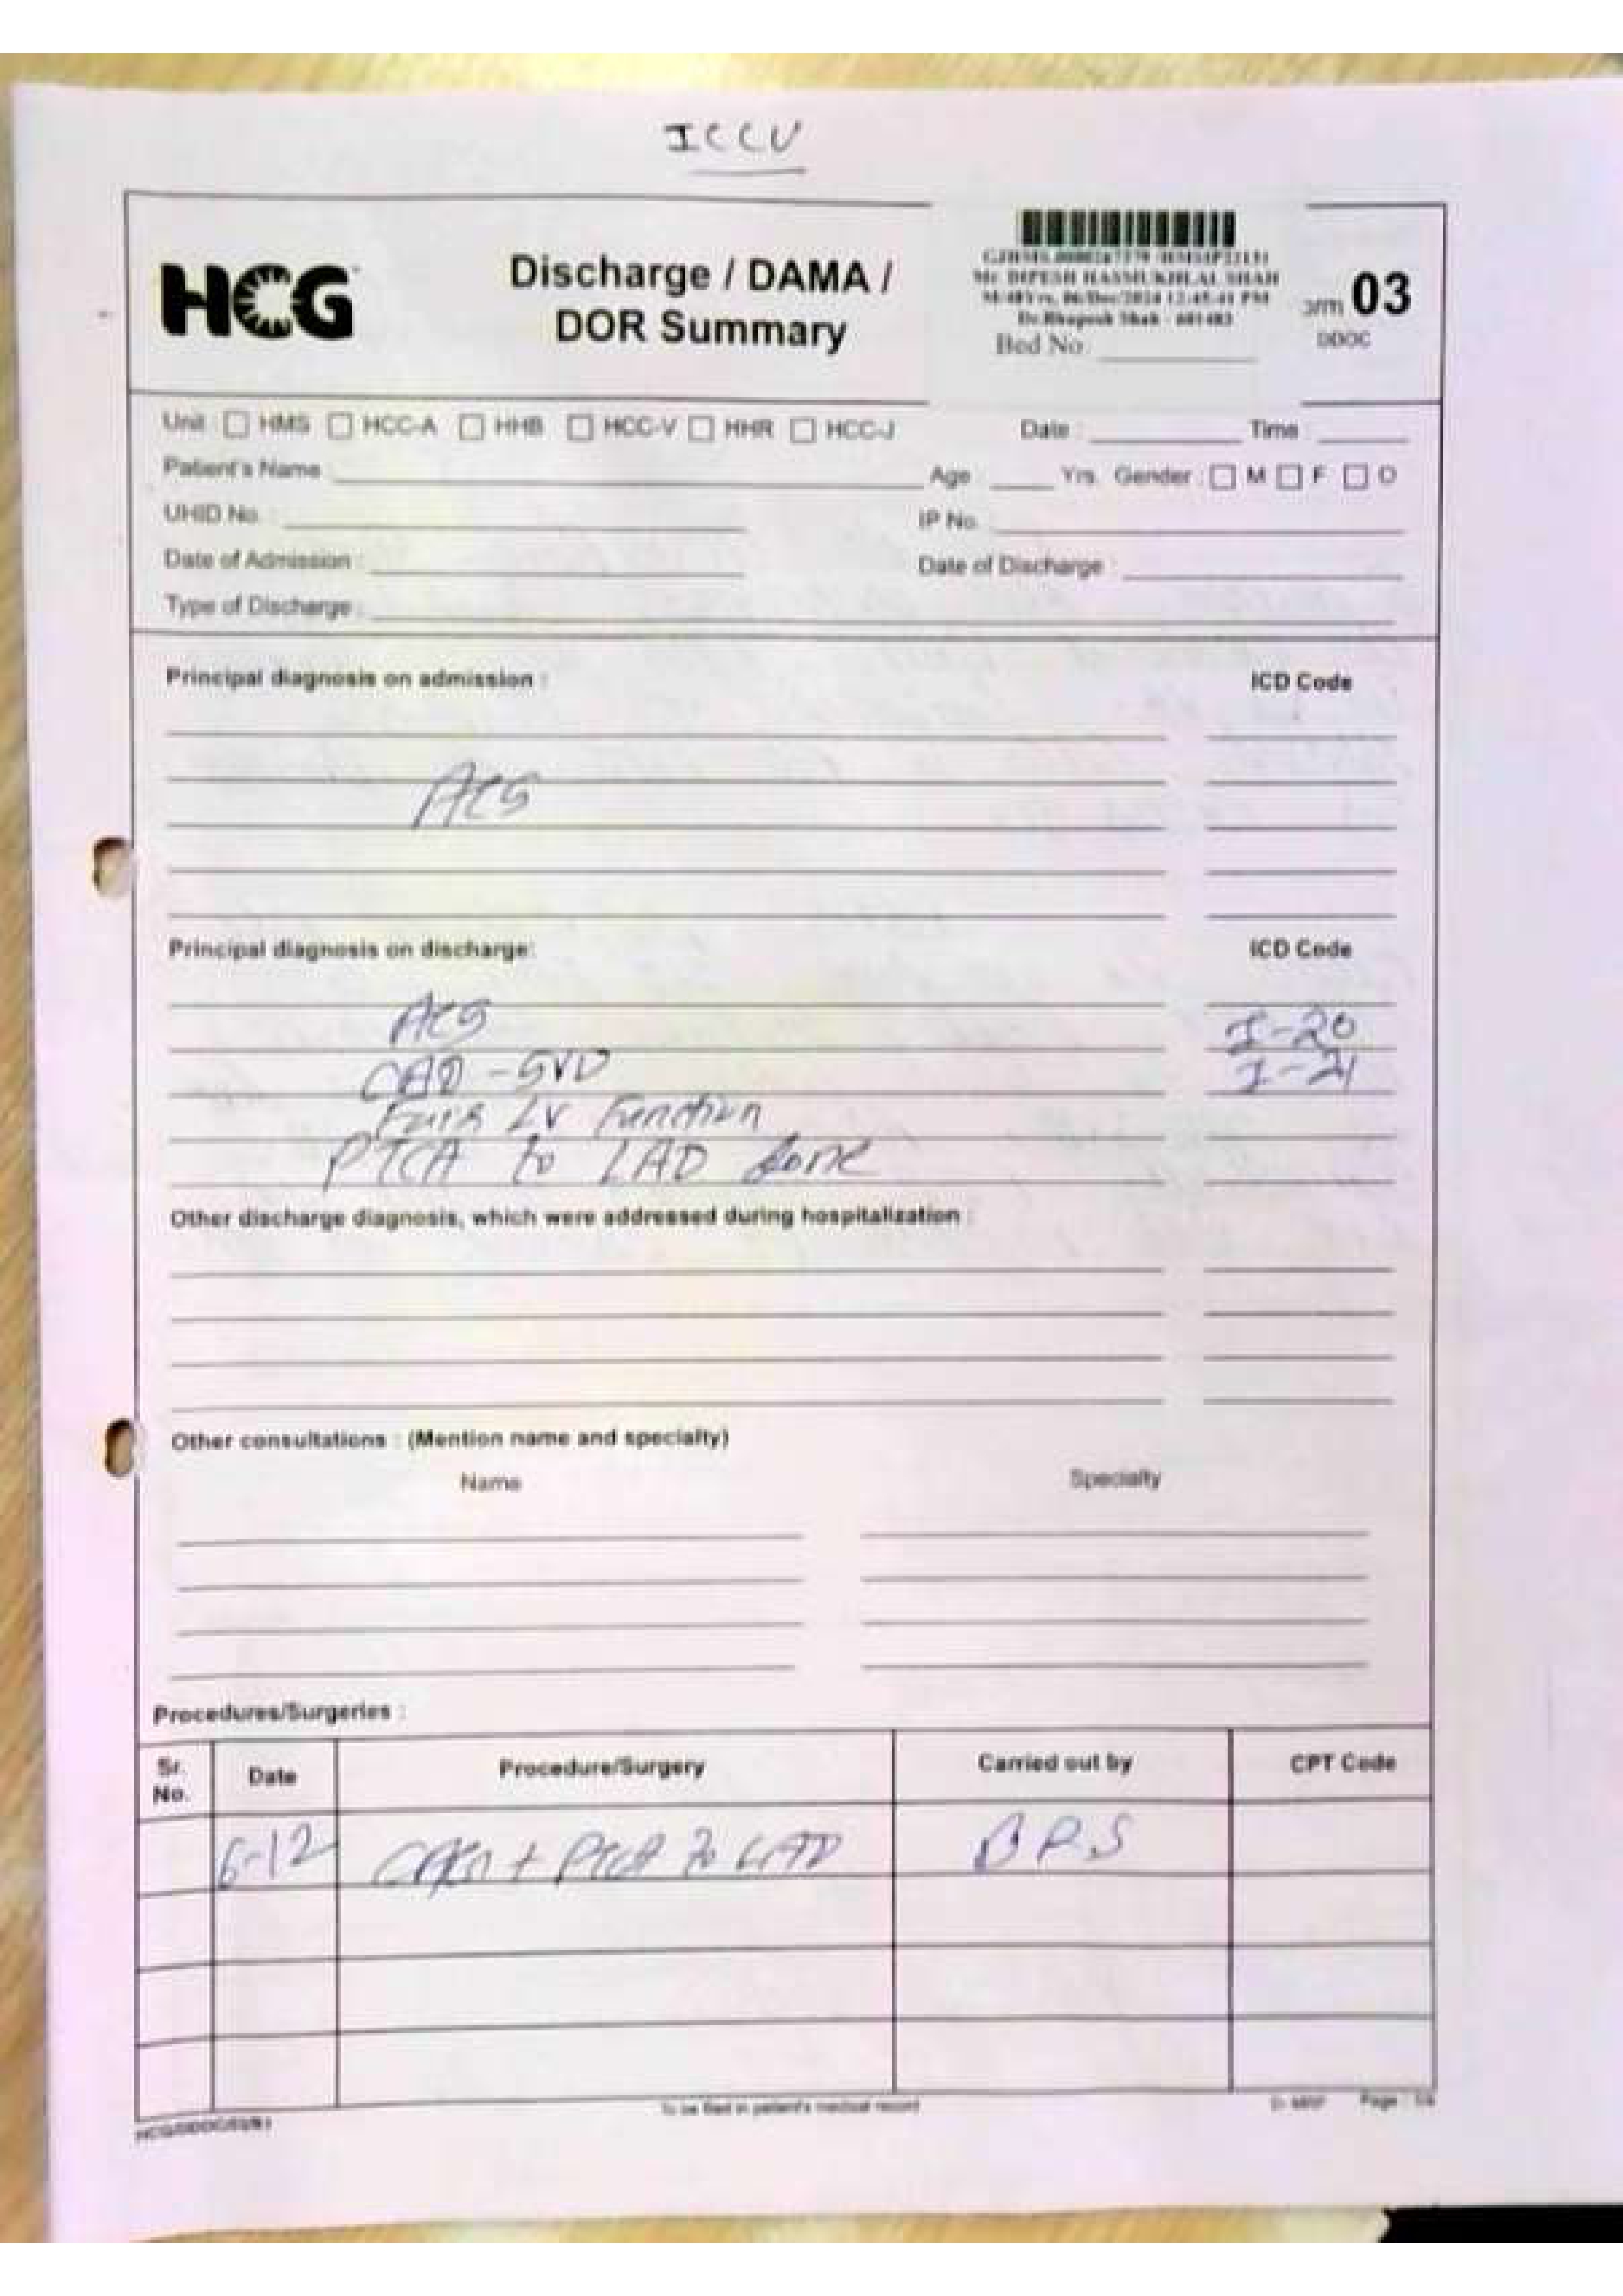 ICCU
HCG
Discharge / DAMA /
DOR Summary
Mr. DIPESH HASMUKHLAL SHAH
M/48Yrs, 06/Dec/2024 12:45:41 PM
Dr.Bhupesh Shah - 601483
Bed No
03
DDOC
Unit : HMS HCC-A HHB HCC-V HHR HCC-J Date : Time :
Patient's Name Age Yrs. Gender : M F O
UHID No. : IP No.
Date of Admission : Date of Discharge :
Type of Discharge :
Principal diagnosis on admission : ICD Code
ACS
Principal diagnosis on discharge: ICD Code
ACS I-20
CAD - SVD I-21
Fair LV Function
PTCA to LAD done
Other discharge diagnosis, which were addressed during hospitalization :
Other consultations : (Mention name and specialty)
Name Specialty
Procedures/Surgeries :
Sr. No. Date Procedure/Surgery Carried out by CPT Code
6-12 + PTCA to LAD
To be filed in patient's medical record
Page :